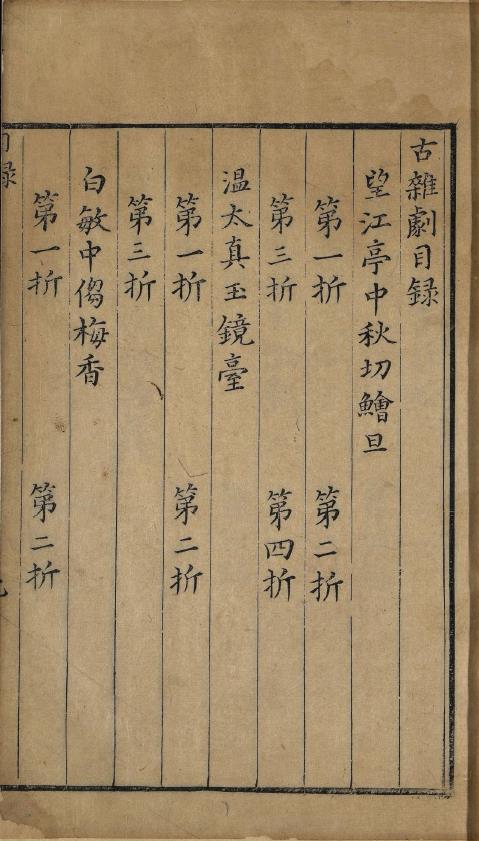 古雜劇目録
望江亭中秋切鱠旦
第一折 第二折
第三折 第四折
温太真玉鏡臺
第一折 第二折
第三折
白敏中㑳梅香
第一折 第二折
目録